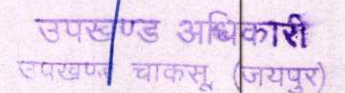 उपखण्ड अधिकारी
उपखण्ड चाकसू (जयपुर)